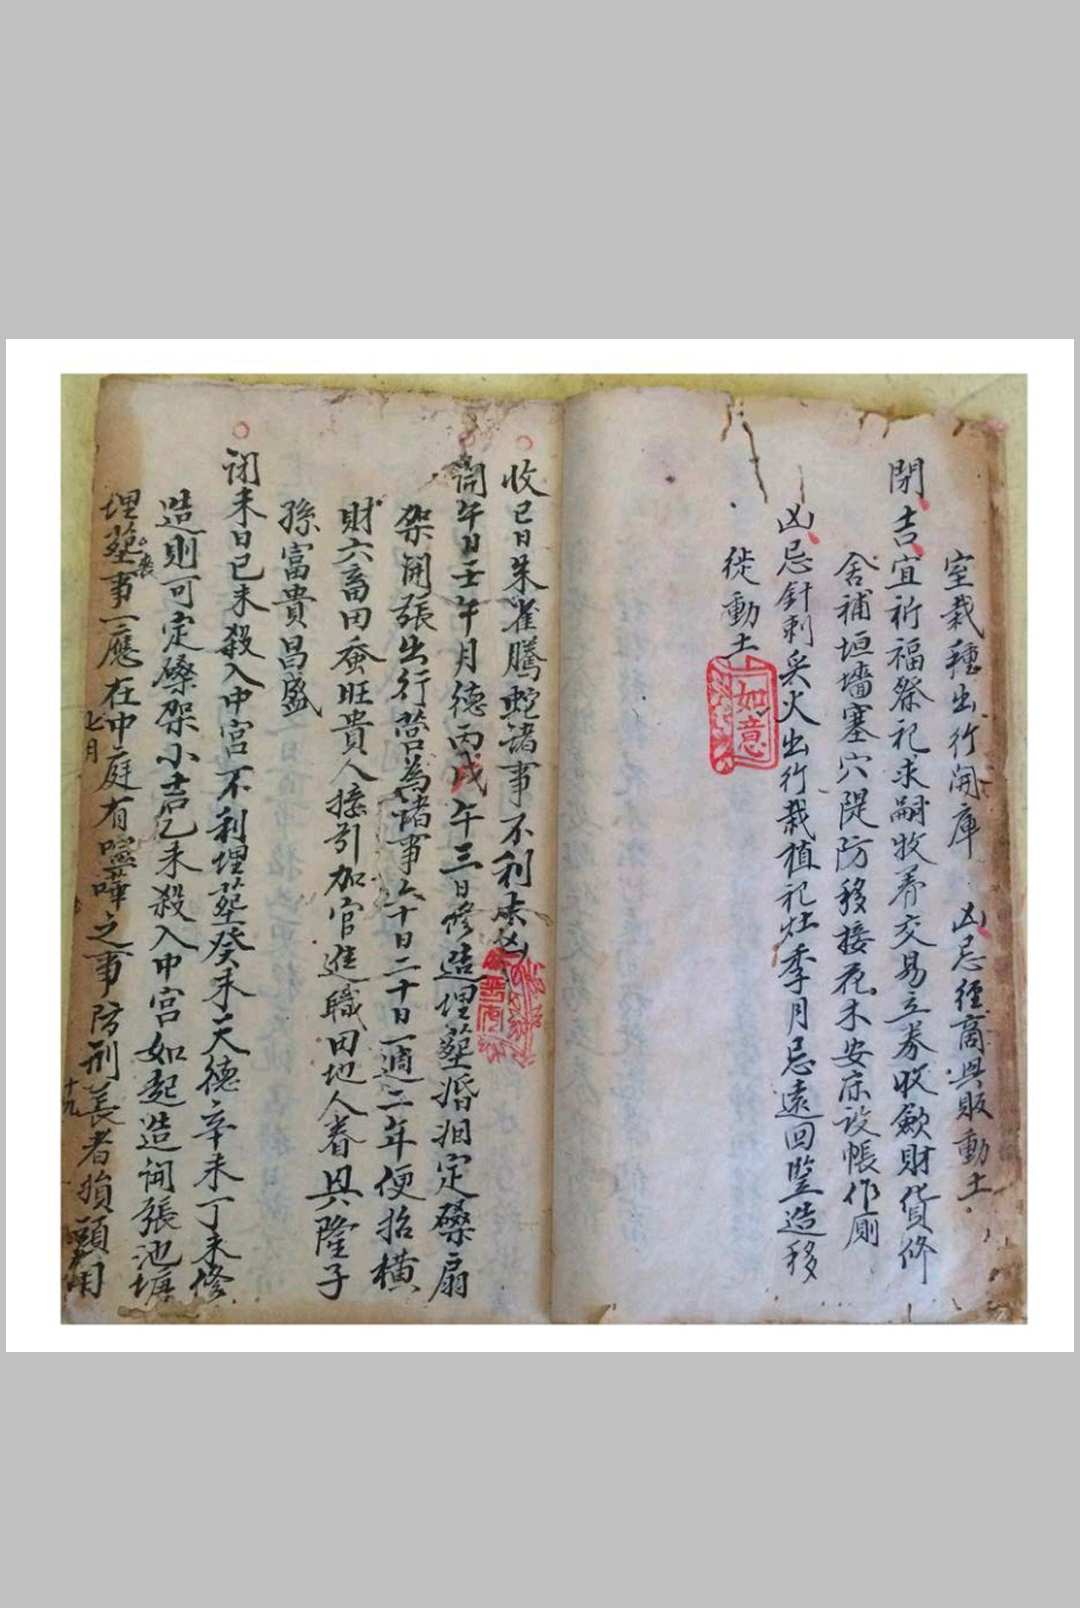 室栽種出行開庫 凶忌經商興販動土
閉吉宜祈福祭祀求嗣牧养交易立券收歛財貨修
舍補垣墻塞穴隄防移接花木安床設帳作厠
凶忌針刺灸火出行栽植祀灶季月忌遠回竪造移
徙動土
如意
收巳日朱雀騰蛇諸事不利大凶
開午日壬午月德丙戊午三日修造埋葬婚姻定磉扇
架開張出行营為諸事六十日二十日一適二年便招橫
財六畜田蚕旺貴人接引加官進職田地人眷興隆子
孫富貴昌盛
闭未日己未殺入中宫不利埋葬癸未天德辛未丁未修
造則可定磉架小吉乙未殺入中宮如起造開張池塘
埋葬喪事一應在中庭有喧嘩之事防刑羔者損頭用
七月
十九